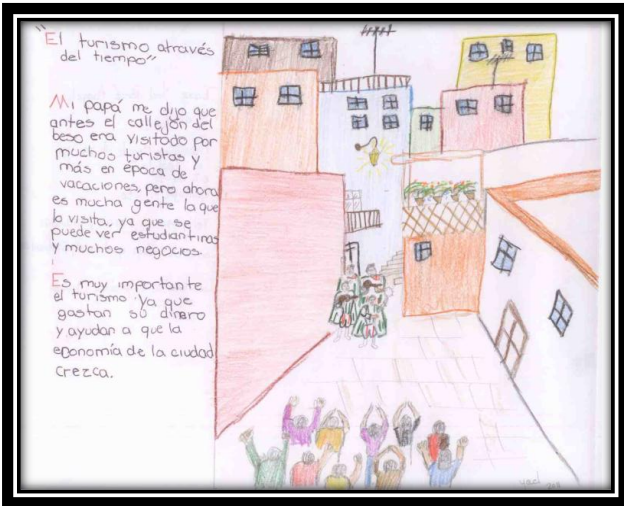 "El turismo através
del tiempo"
Mi papá me dijo que
antes el callejón del
beso era visitado por
muchos turistas y
más en época de
vacaciones, pero ahora
es mucha gente la que
lo visita, ya que se
puede ver estudiantinas
y muchos negocios.
Es muy importante
el turismo ya que
gastan su dinero
y ayudan a que la
economía de la ciudad
crezca.